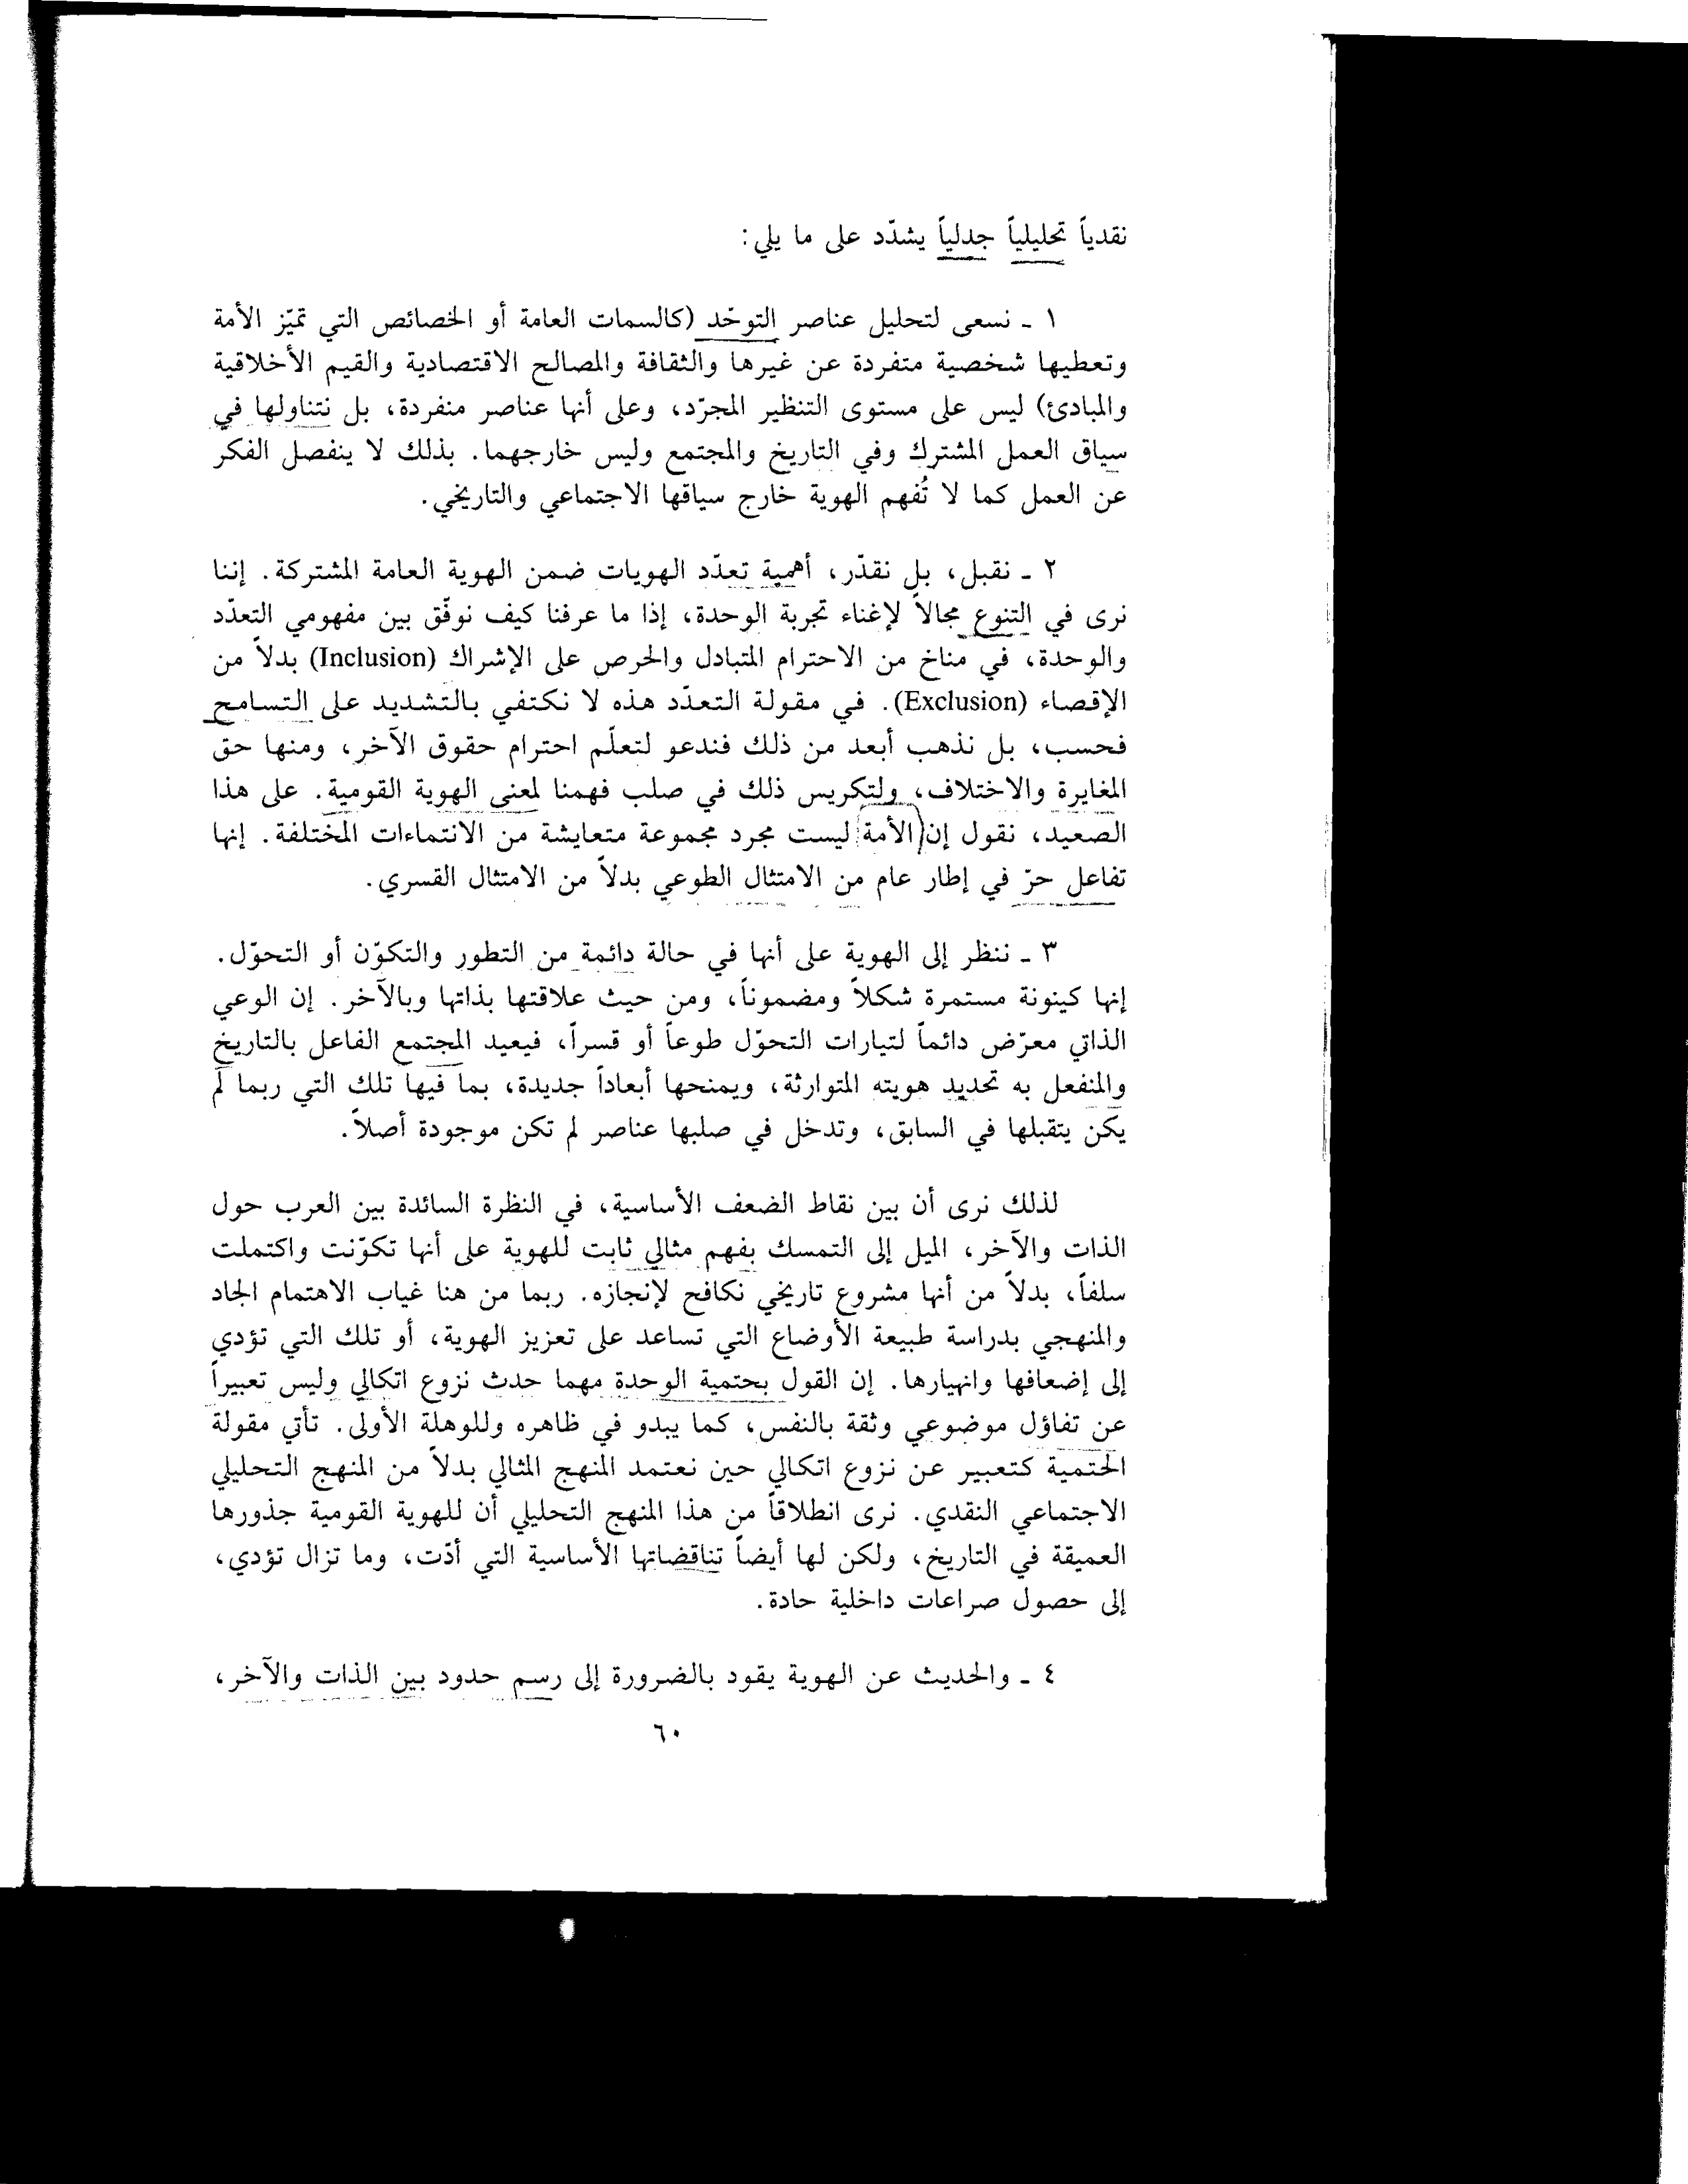 نقدياً تحليلياً جدلياً يشدّد على ما يلي:
١ ـ نسعى لتحليل عناصر التوحّد (كالسمات العامة أو الخصائص التي تميّز الأمة
وتعطيها شخصية متفردة عن غيرها والثقافة والمصالح الاقتصادية والقيم الأخلاقية
والمبادئ) ليس على مستوى التنظير المجرّد، وعلى أنها عناصر منفردة، بل نتناولها في
سياق العمل المشترك وفي التاريخ والمجتمع وليس خارجهما. بذلك لا ينفصل الفكر
عن العمل كما لا تُفهم الهوية خارج سياقها الاجتماعي والتاريخي.
٢ ـ نقبل، بل نقدّر، أهمية تعدّد الهويات ضمن الهوية العامة المشتركة. إننا
نرى في التنوع مجالاً لإغناء تجربة الوحدة، إذا ما عرفنا كيف نوفّق بين مفهومي التعدّد
والوحدة، في مناخ من الاحترام المتبادل والحرص على الإشراك (Inclusion) بدلاً من
الإقصاء (Exclusion). في مقولة التعدّد هذه لا نكتفي بالتشديد على التسامح
فحسب، بل نذهب أبعد من ذلك فندعو لتعلّم احترام حقوق الآخر، ومنها حق
المغايرة والاختلاف، ولتكريس ذلك في صلب فهمنا لمعنى الهوية القومية. على هذا
الصعيد، نقول إن الأمة ليست مجرد مجموعة متعايشة من الانتماءات المختلفة. إنها
تفاعل حرّ في إطار عام من الامتثال الطوعي بدلاً من الامتثال القسري.
٣ ـ ننظر إلى الهوية على أنها في حالة دائمة من التطور والتكوّن أو التحوّل.
إنها كينونة مستمرة شكلاً ومضموناً، ومن حيث علاقتها بذاتها وبالآخر. إن الوعي
الذاتي معرّض دائماً لتيارات التحوّل طوعاً أو قسراً، فيعيد المجتمع الفاعل بالتاريخ
والمنفعل به تحديد هويته المتوارثة، ويمنحها أبعاداً جديدة، بما فيها تلك التي ربما لم
يكن يتقبلها في السابق، وتدخل في صلبها عناصر لم تكن موجودة أصلاً.
لذلك نرى أن بين نقاط الضعف الأساسية، في النظرة السائدة بين العرب حول
الذات والآخر، الميل إلى التمسك بفهم مثالي ثابت للهوية على أنها تكوّنت واكتملت
سلفاً، بدلاً من أنها مشروع تاريخي نكافح لإنجازه. ربما من هنا غياب الاهتمام الجاد
والمنهجي بدراسة طبيعة الأوضاع التي تساعد على تعزيز الهوية، أو تلك التي تؤدي
إلى إضعافها وانهيارها. إن القول بحتمية الوحدة مهما حدث نزوع اتكالي وليس تعبيراً
عن تفاؤل موضوعي وثقة بالنفس، كما يبدو في ظاهره وللوهلة الأولى. تأتي مقولة
الحتمية كتعبير عن نزوع اتكالي حين نعتمد المنهج المثالي بدلاً من المنهج التحليلي
الاجتماعي النقدي. نرى انطلاقاً من هذا المنهج التحليلي أن للهوية القومية جذورها
العميقة في التاريخ، ولكن لها أيضاً تناقضاتها الأساسية التي أدّت، وما تزال تؤدي،
إلى حصول صراعات داخلية حادة.
٤ ـ والحديث عن الهوية يقود بالضرورة إلى رسم حدود بين الذات والآخر،
٦٠